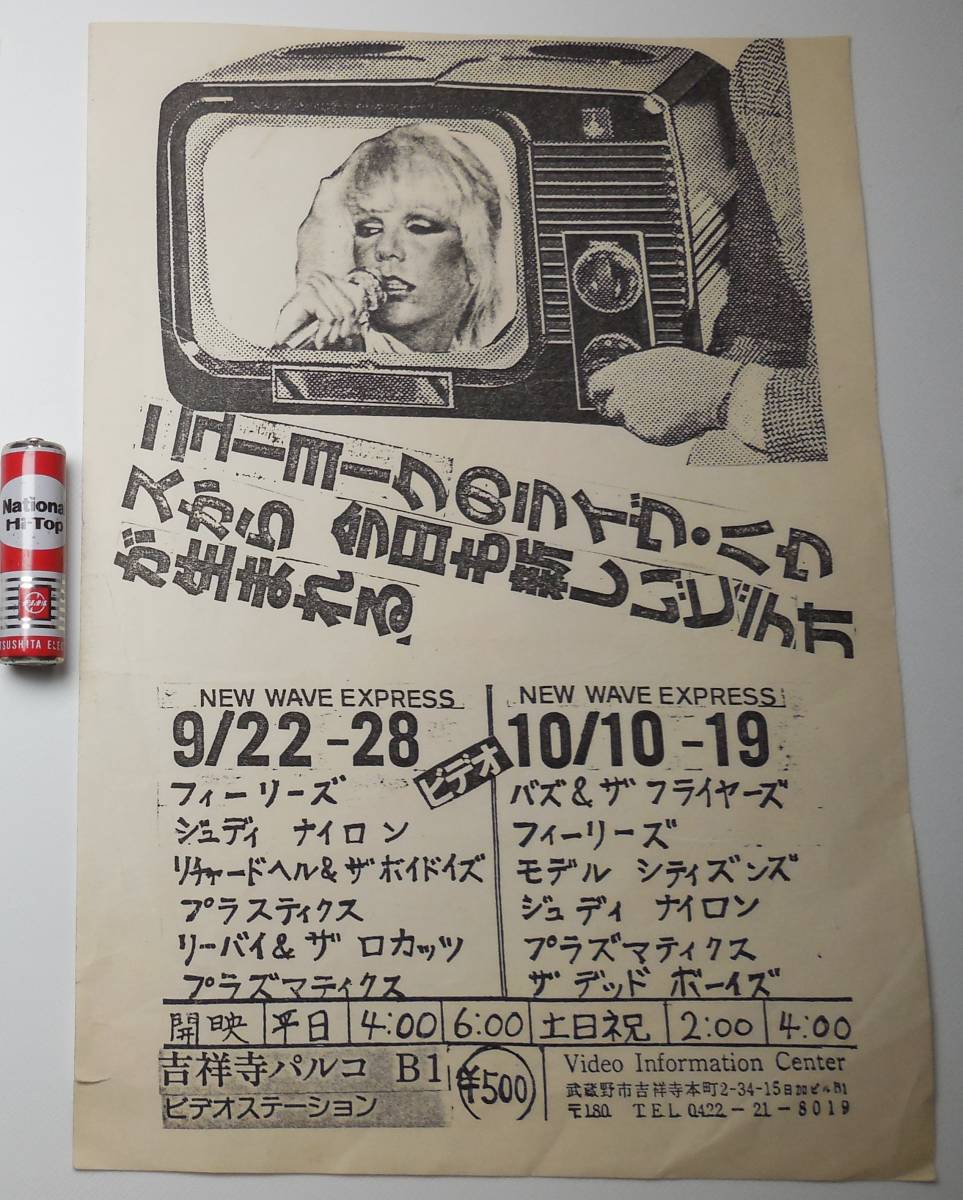 ニューヨークのライヴ・ハウ
スから 今日も新しいビデオ
が生まれる!
NEW WAVE EXPRESS
9/22-28
フィーリーズ
ジュディ ナイロン
リチャードヘル&ザボイドイズ
プラスティクス
リーバイ&ザ ロカッツ
プラズマティクス
ビデオ
NEW WAVE EXPRESS
10/10-19
バズ&ザ フライヤーズ
フィーリーズ
モデル シティズンズ
ジュディ ナイロン
プラズマティクス
ザ デッド ボーイズ
開映 平日 4:00 6:00 土日祝 2:00 4:00
吉祥寺パルコ B1
ビデオステーション
¥500
Video Information Center
武蔵野市吉祥寺本町2-34-15日加ビルB1
〒180. TEL 0422-21-8019
National
Hi-Top
ナショナル
TSUSHITA ELEC